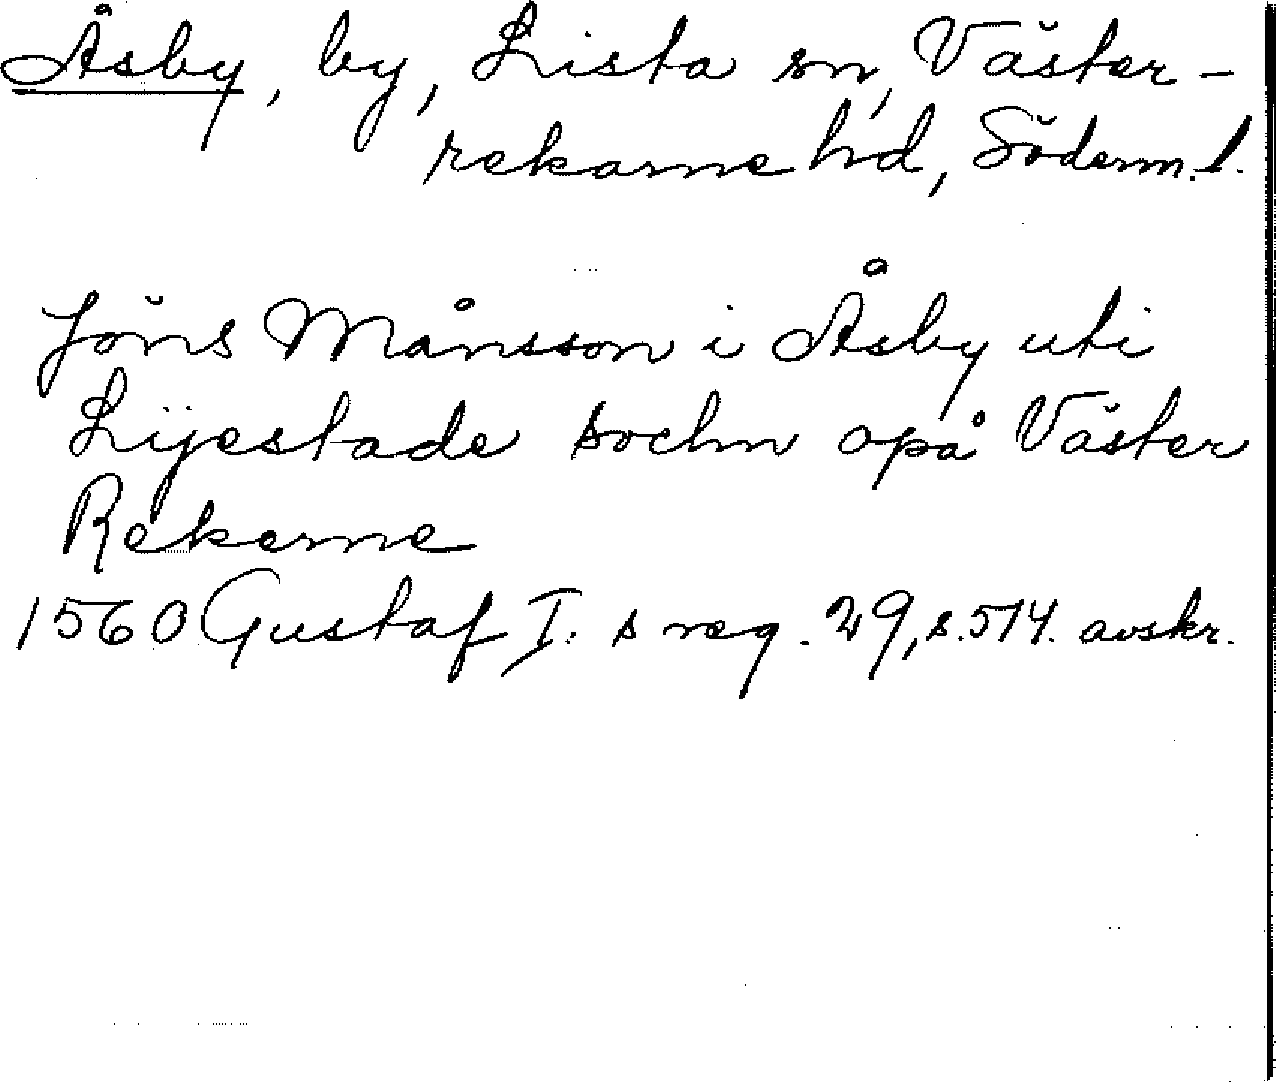 Åsby, by, Lista sn, Väster-
rekarne hd, Söderm. l.
Jöns Månsson i Åsby uti
Lijestade sochn opå Väster
Rekerne
1560 Gustaf I:s reg. 29, s. 574. avskr.